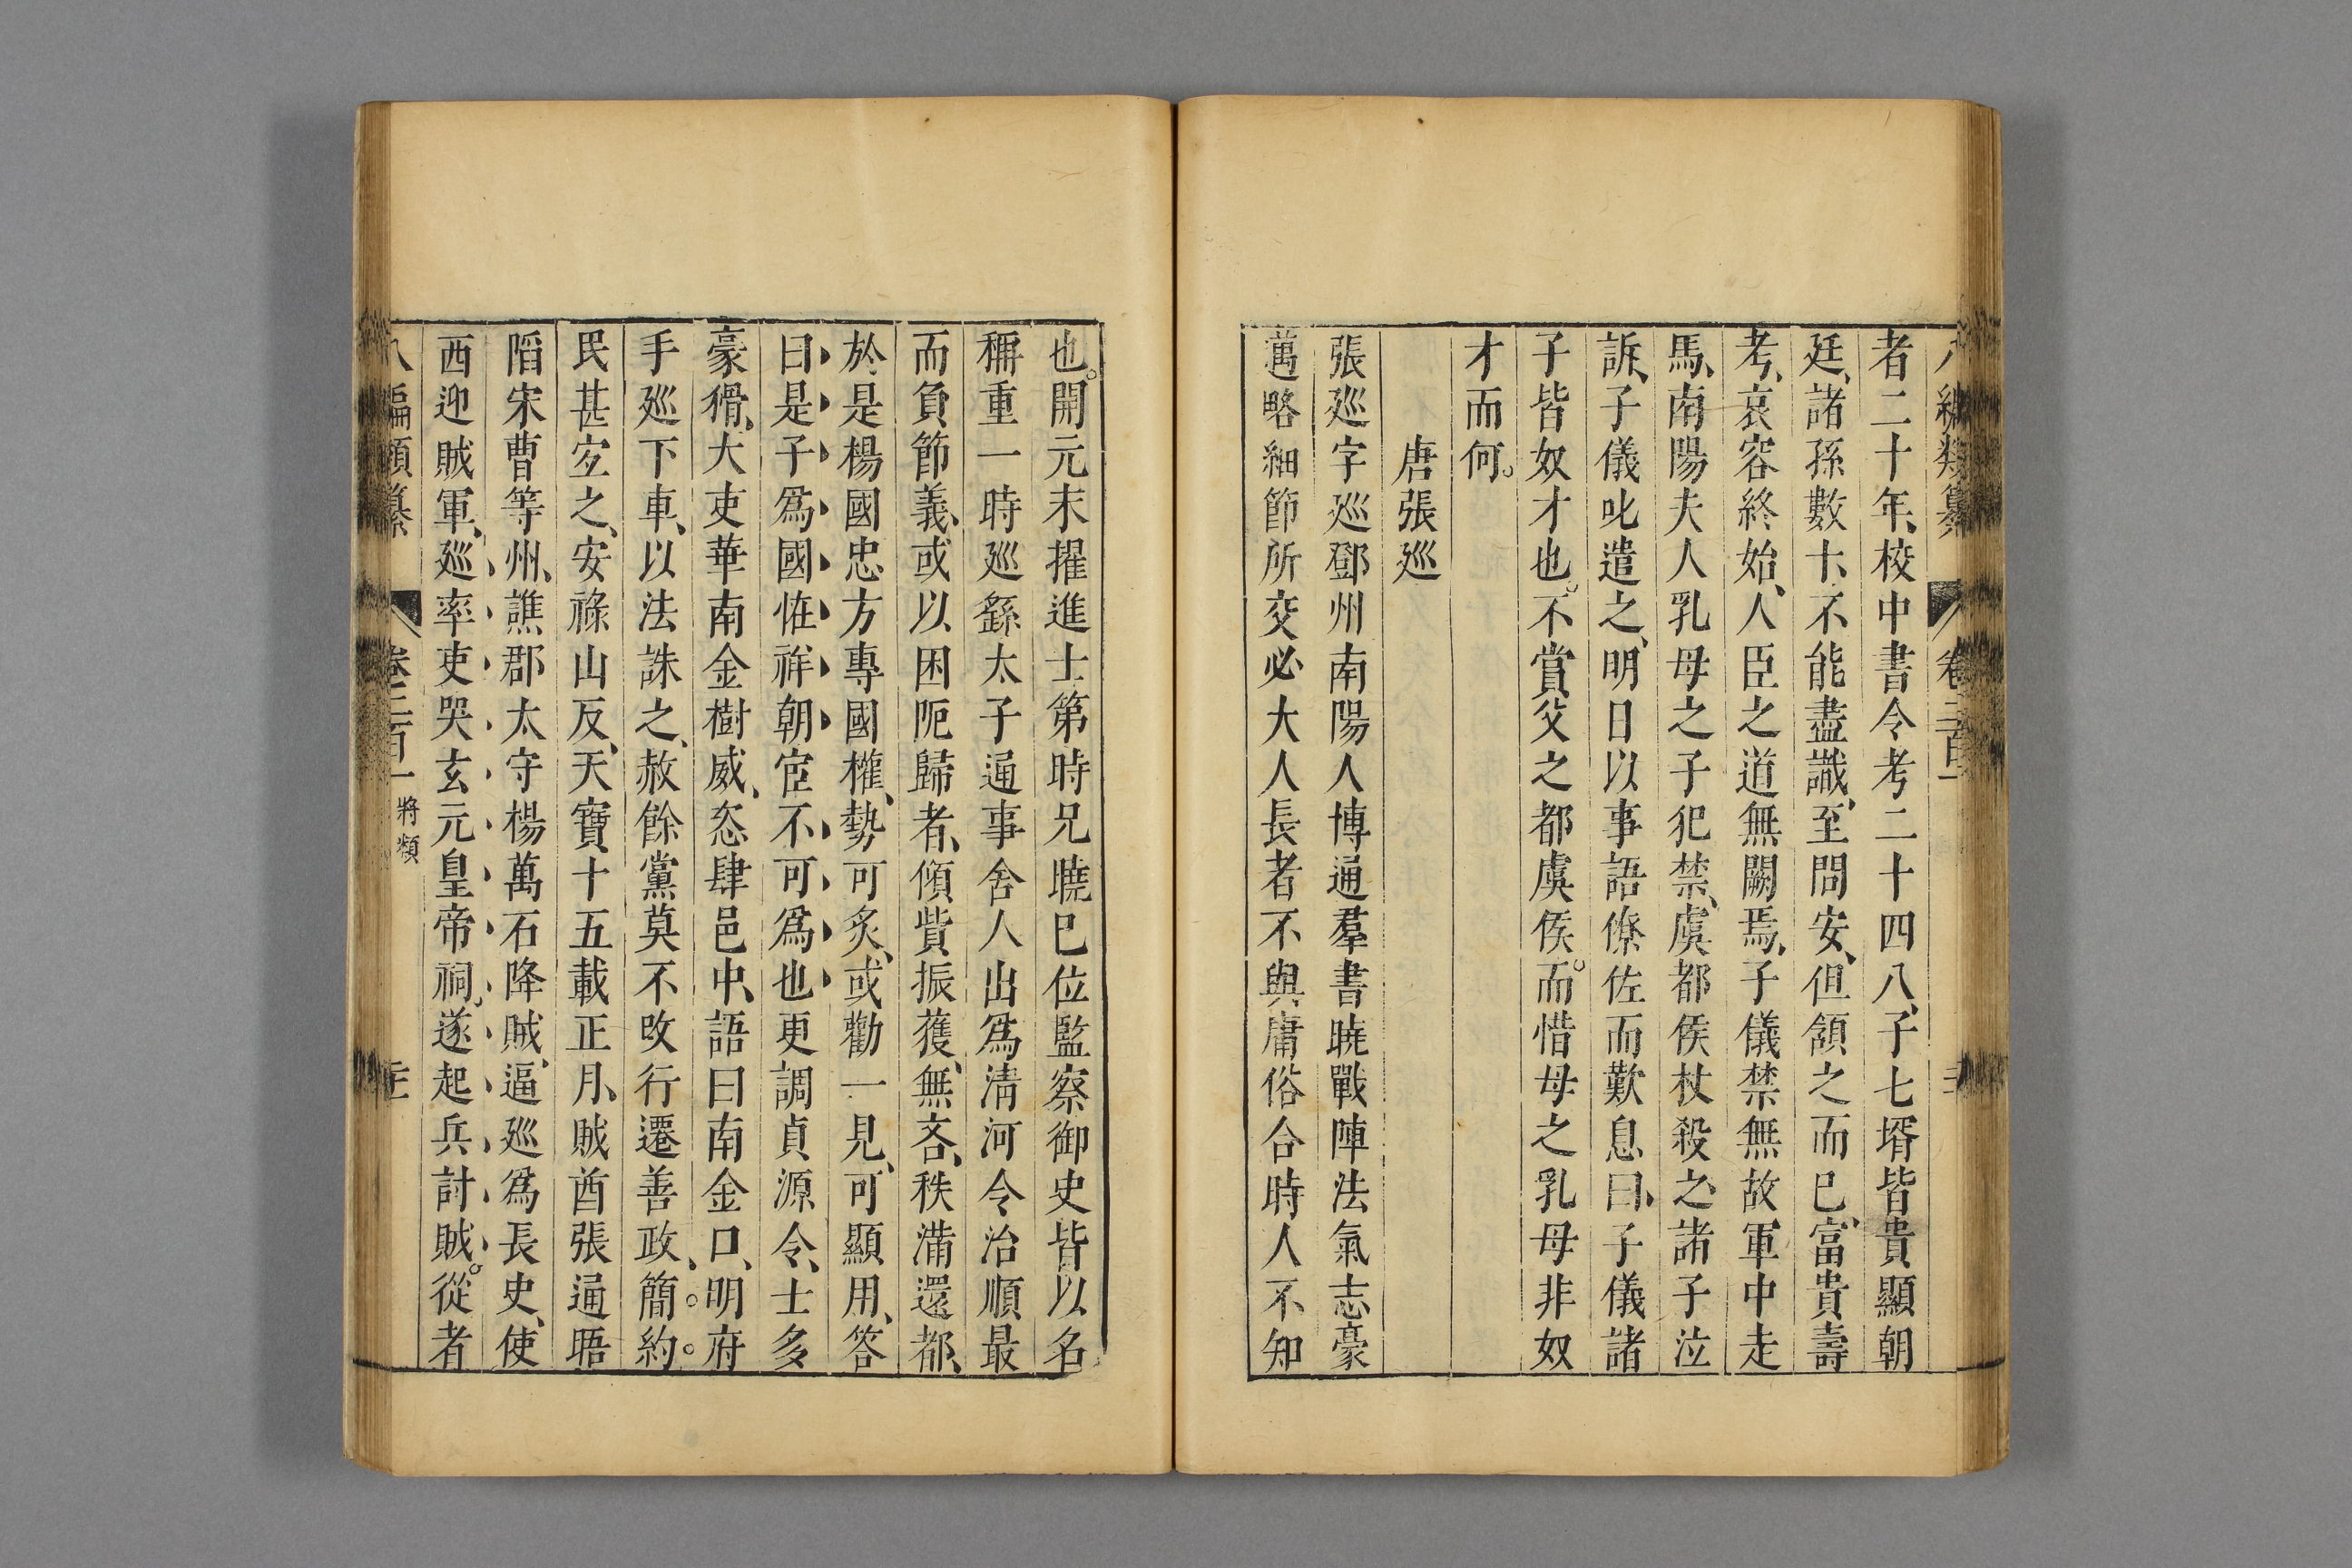 八編類纂 卷二百一
者二十年、校中書令考二十四八、子七壻皆貴顯朝
廷、諸孫數十、不能盡識、至問安、但頷之而已、富貴壽
考、哀容終始、人臣之道無闕焉、子儀禁無故軍中走
馬、南陽夫人乳母之子犯禁、虞都侯杖殺之、諸子泣
訴、子儀叱遣之、明日以事語僚佐而歎息曰、子儀諸
子皆奴才也。不賞父之都虞侯。而惜母之乳母非奴
才而何。
唐張巡
張巡字巡鄧州南陽人博通羣書曉戰陣法氣志豪
邁略細節所交必大人長者不與庸俗合時人不知
也。開元末擢進士第時兄曉已位監察御史皆以名
稱重一時巡繇太子通事舍人出爲清河令治順最
而負節義、或以困阨歸者、傾貲振護、無吝、秩滿還都、
於是楊國忠方專國權、勢可炙、或勸一見、可顯用、答
曰是子爲國恠祥朝宦不可爲也更調貞源令、士多
豪猾、大吏華南金樹威、恣肆邑中、語曰南金口、明府
手巡下車、以法誅之、赦餘黨莫不改行遷善政、簡。約。
民甚宜之、安祿山反、天寶十五載正月、賊酋張通晤
陷宋曹等州、譙郡太守楊萬石降賊、逼巡爲長史、使
西迎賊軍、巡率吏哭玄元皇帝祠、遂起兵討賊。從者
八編類纂 卷二百一 將類